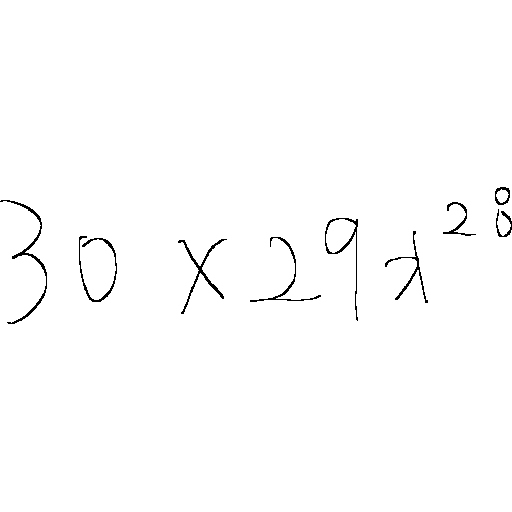 30 × 29λ²⁸